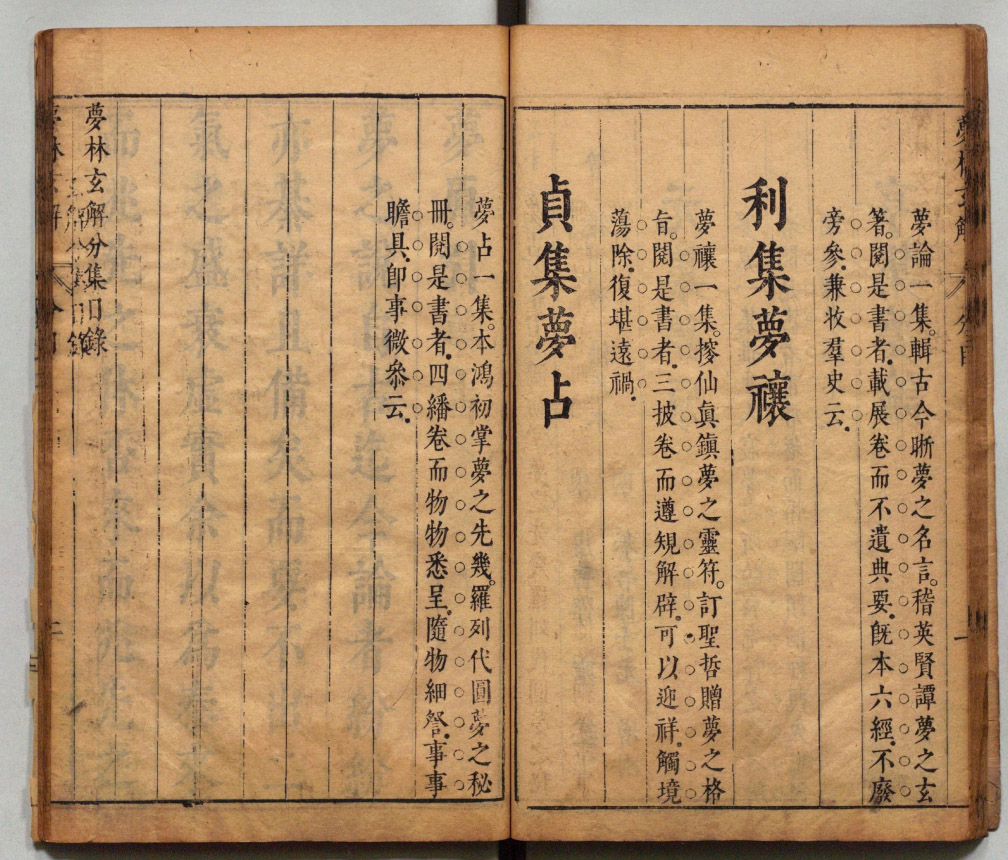 夢論一集。輯古今晰夢之名言。稽英賢譚夢之玄
著。閱是書者。載展卷而不遺典要。旣本六經。不廢
旁參。兼收羣史云。
利集夢禳
夢禳一集。㨙仙眞鎭夢之靈符。訂聖哲贈夢之格
旨。閱是書者。三披卷而遵䂓解辟。可以迎祥。觸境
蕩除。復堪遠禍。
貞集夢占
夢占一集。本鴻初掌夢之先幾。羅列代圓夢之秘
冊。閱是書者。四繙卷而物物悉呈。隨物細詧。事事
瞻具。卽事微叅云。
夢林玄解分集目錄